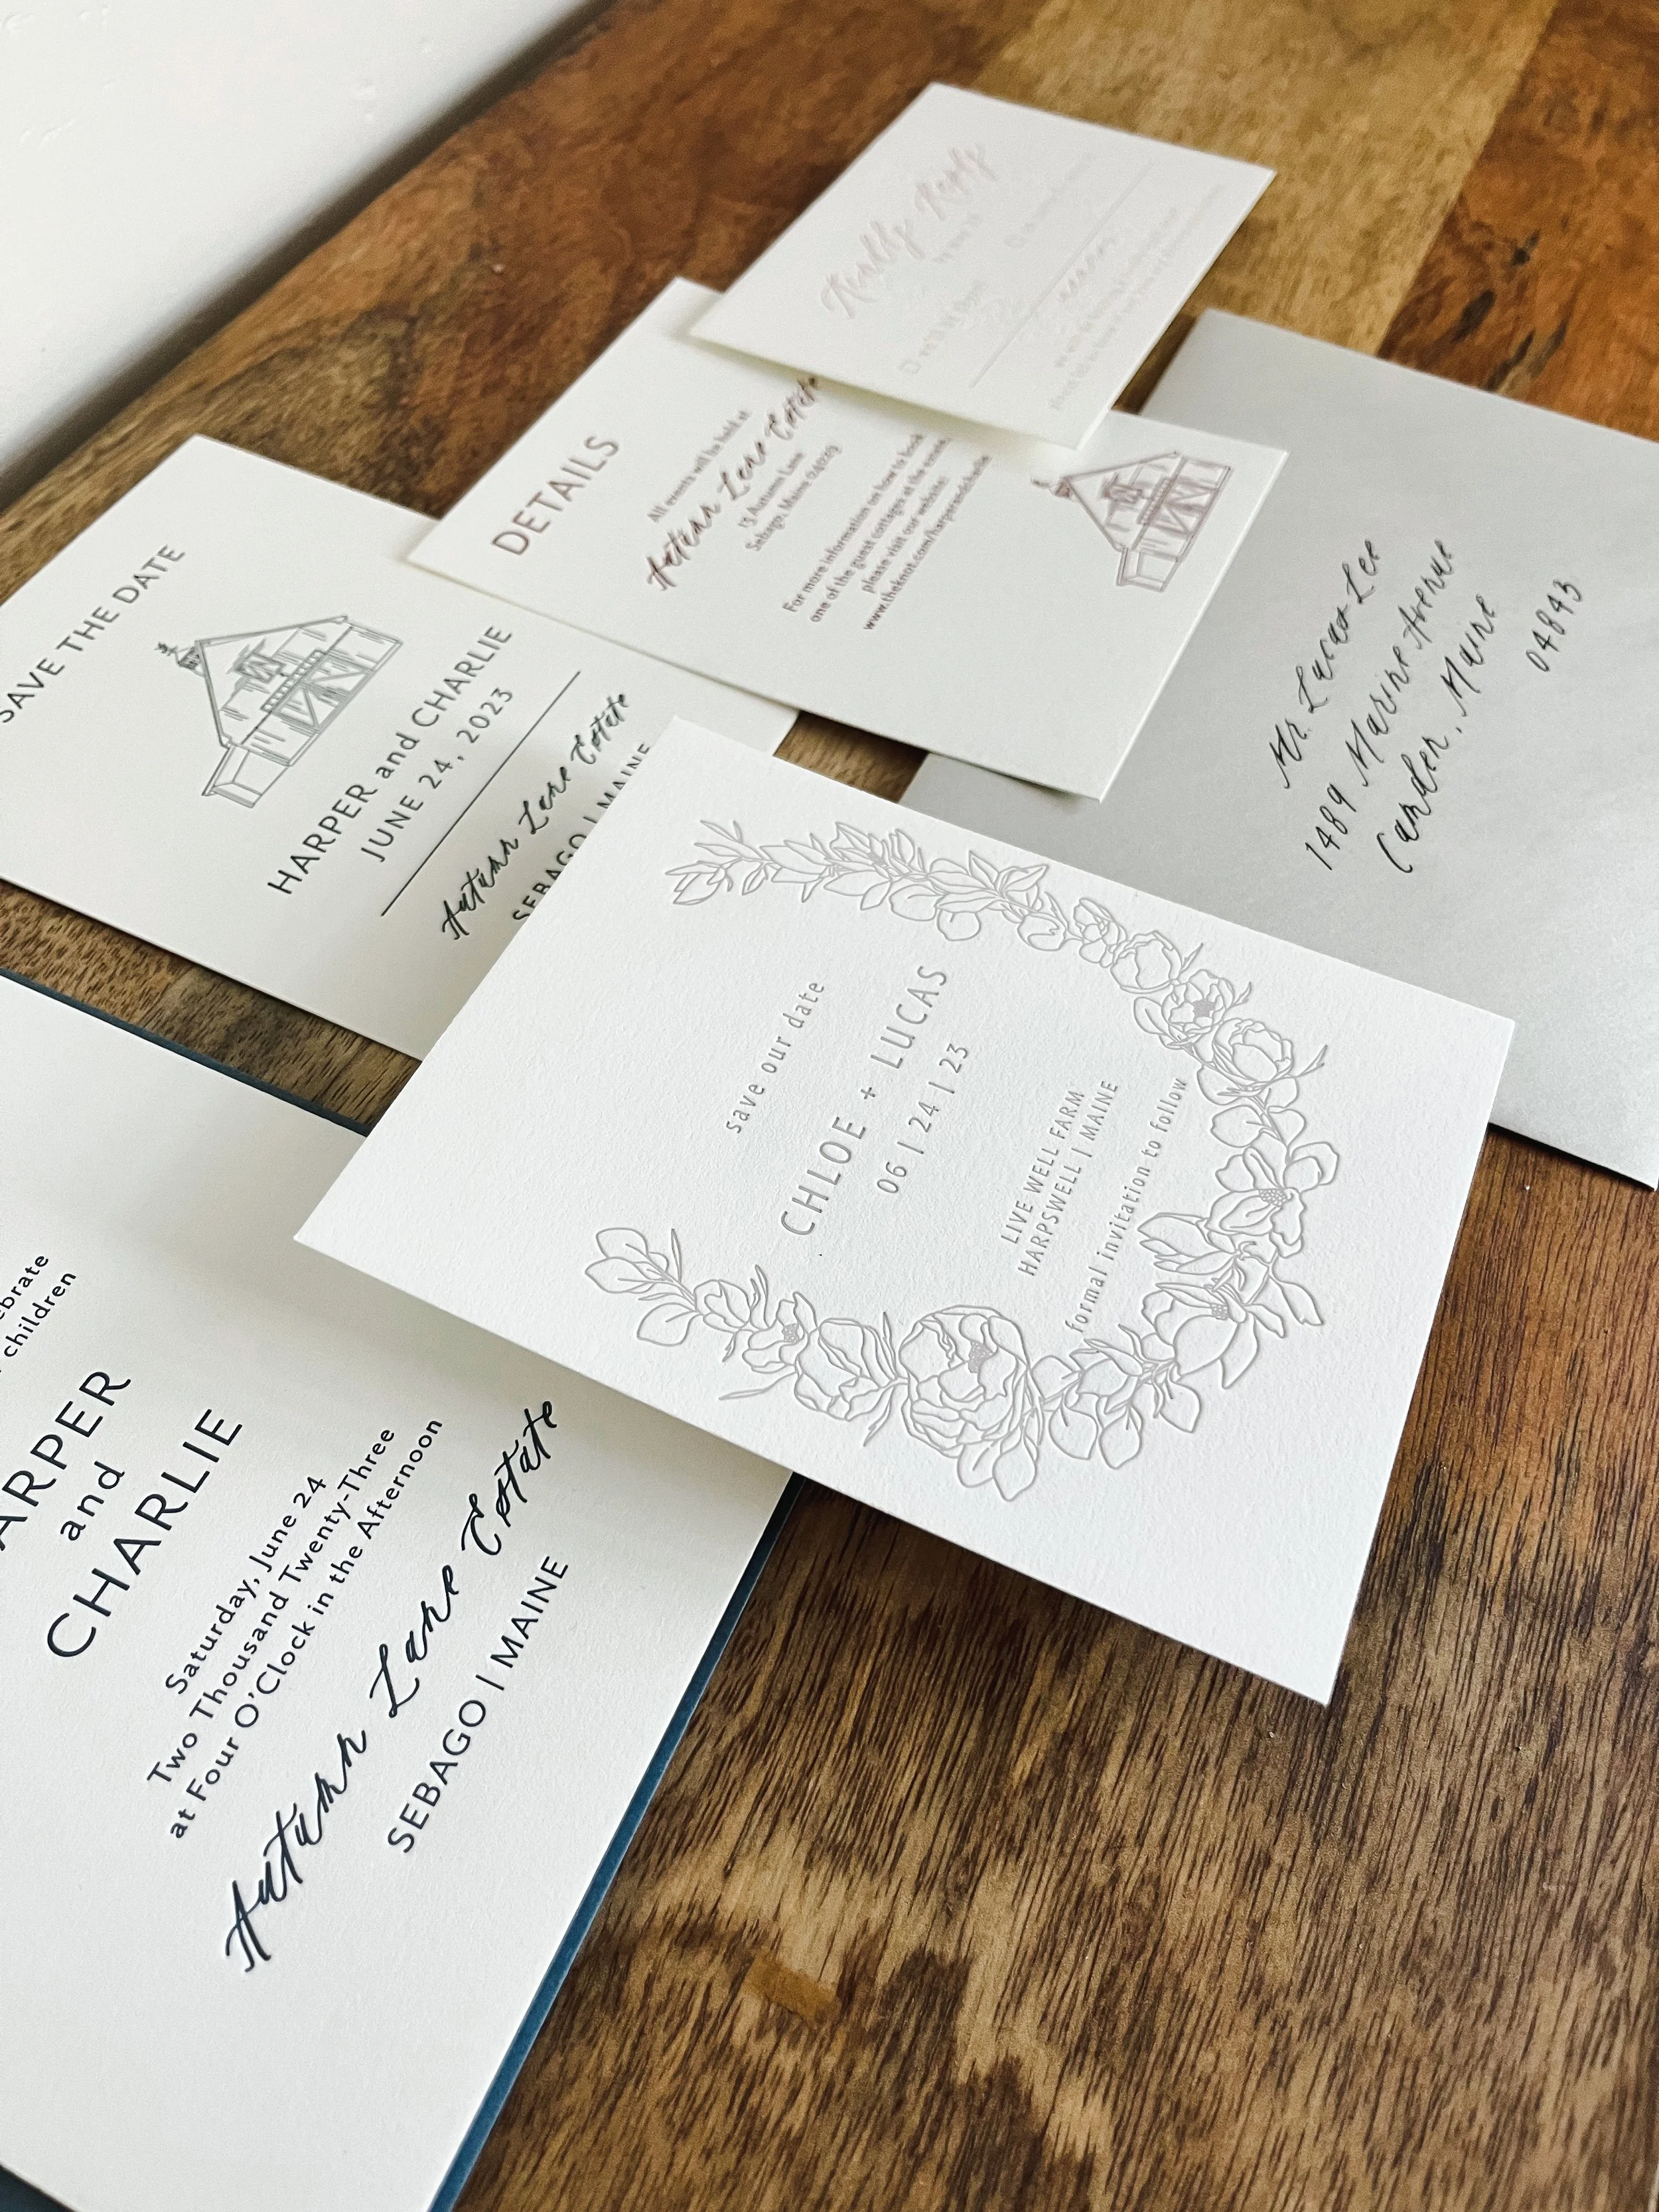 Kindly Reply
DETAILS
All events will be held at
Autumn Lane Estate
13 Autumn Lane
Sebago, Maine 04029
For more information on how to book
one of the guest cottages at the estate,
please visit our website:
www.theknot.com/harperandcharlie
SAVE THE DATE
HARPER and CHARLIE
JUNE 24, 2023
Autumn Lane Estate
SEBAGO | MAINE
Mr. Lucas Lee
1489 Marine Avenue
Camden, Maine
04843
save our date
CHLOE + LUCAS
06 | 24 | 23
LIVE WELL FARM
HARPSWELL | MAINE
formal invitation to follow
children
ARPER
and
CHARLIE
Saturday, June 24
Two Thousand Twenty-Three
at Four O'Clock in the Afternoon
Autumn Lane Estate
SEBAGO | MAINE